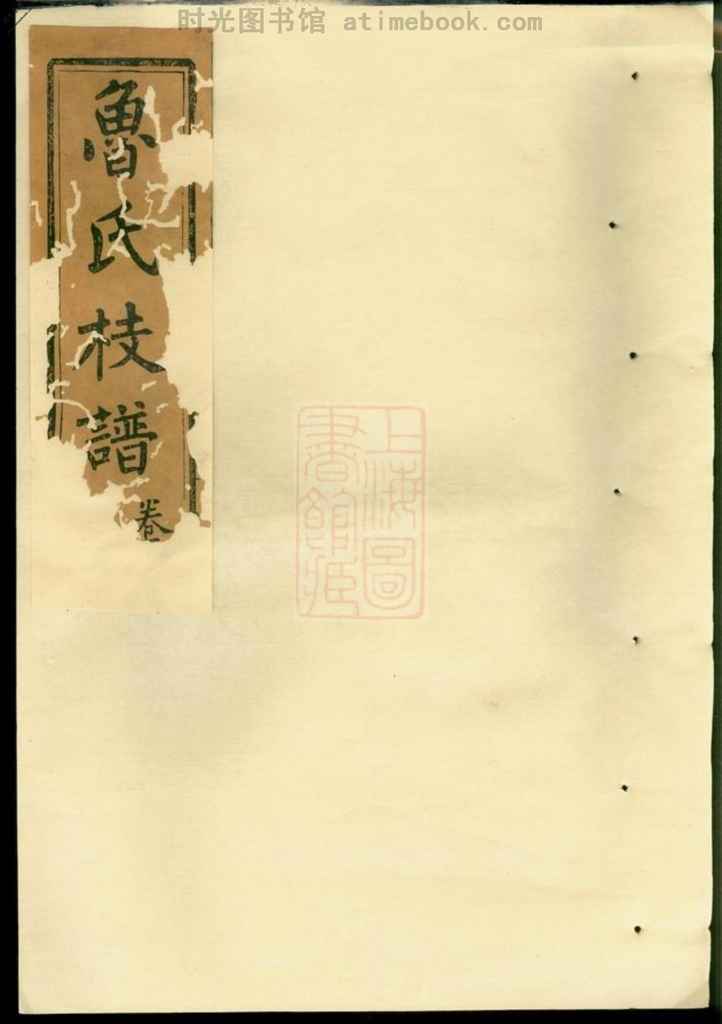 时光图书馆 atimebook.com
魯氏枝譜
卷
上海圖
書館藏